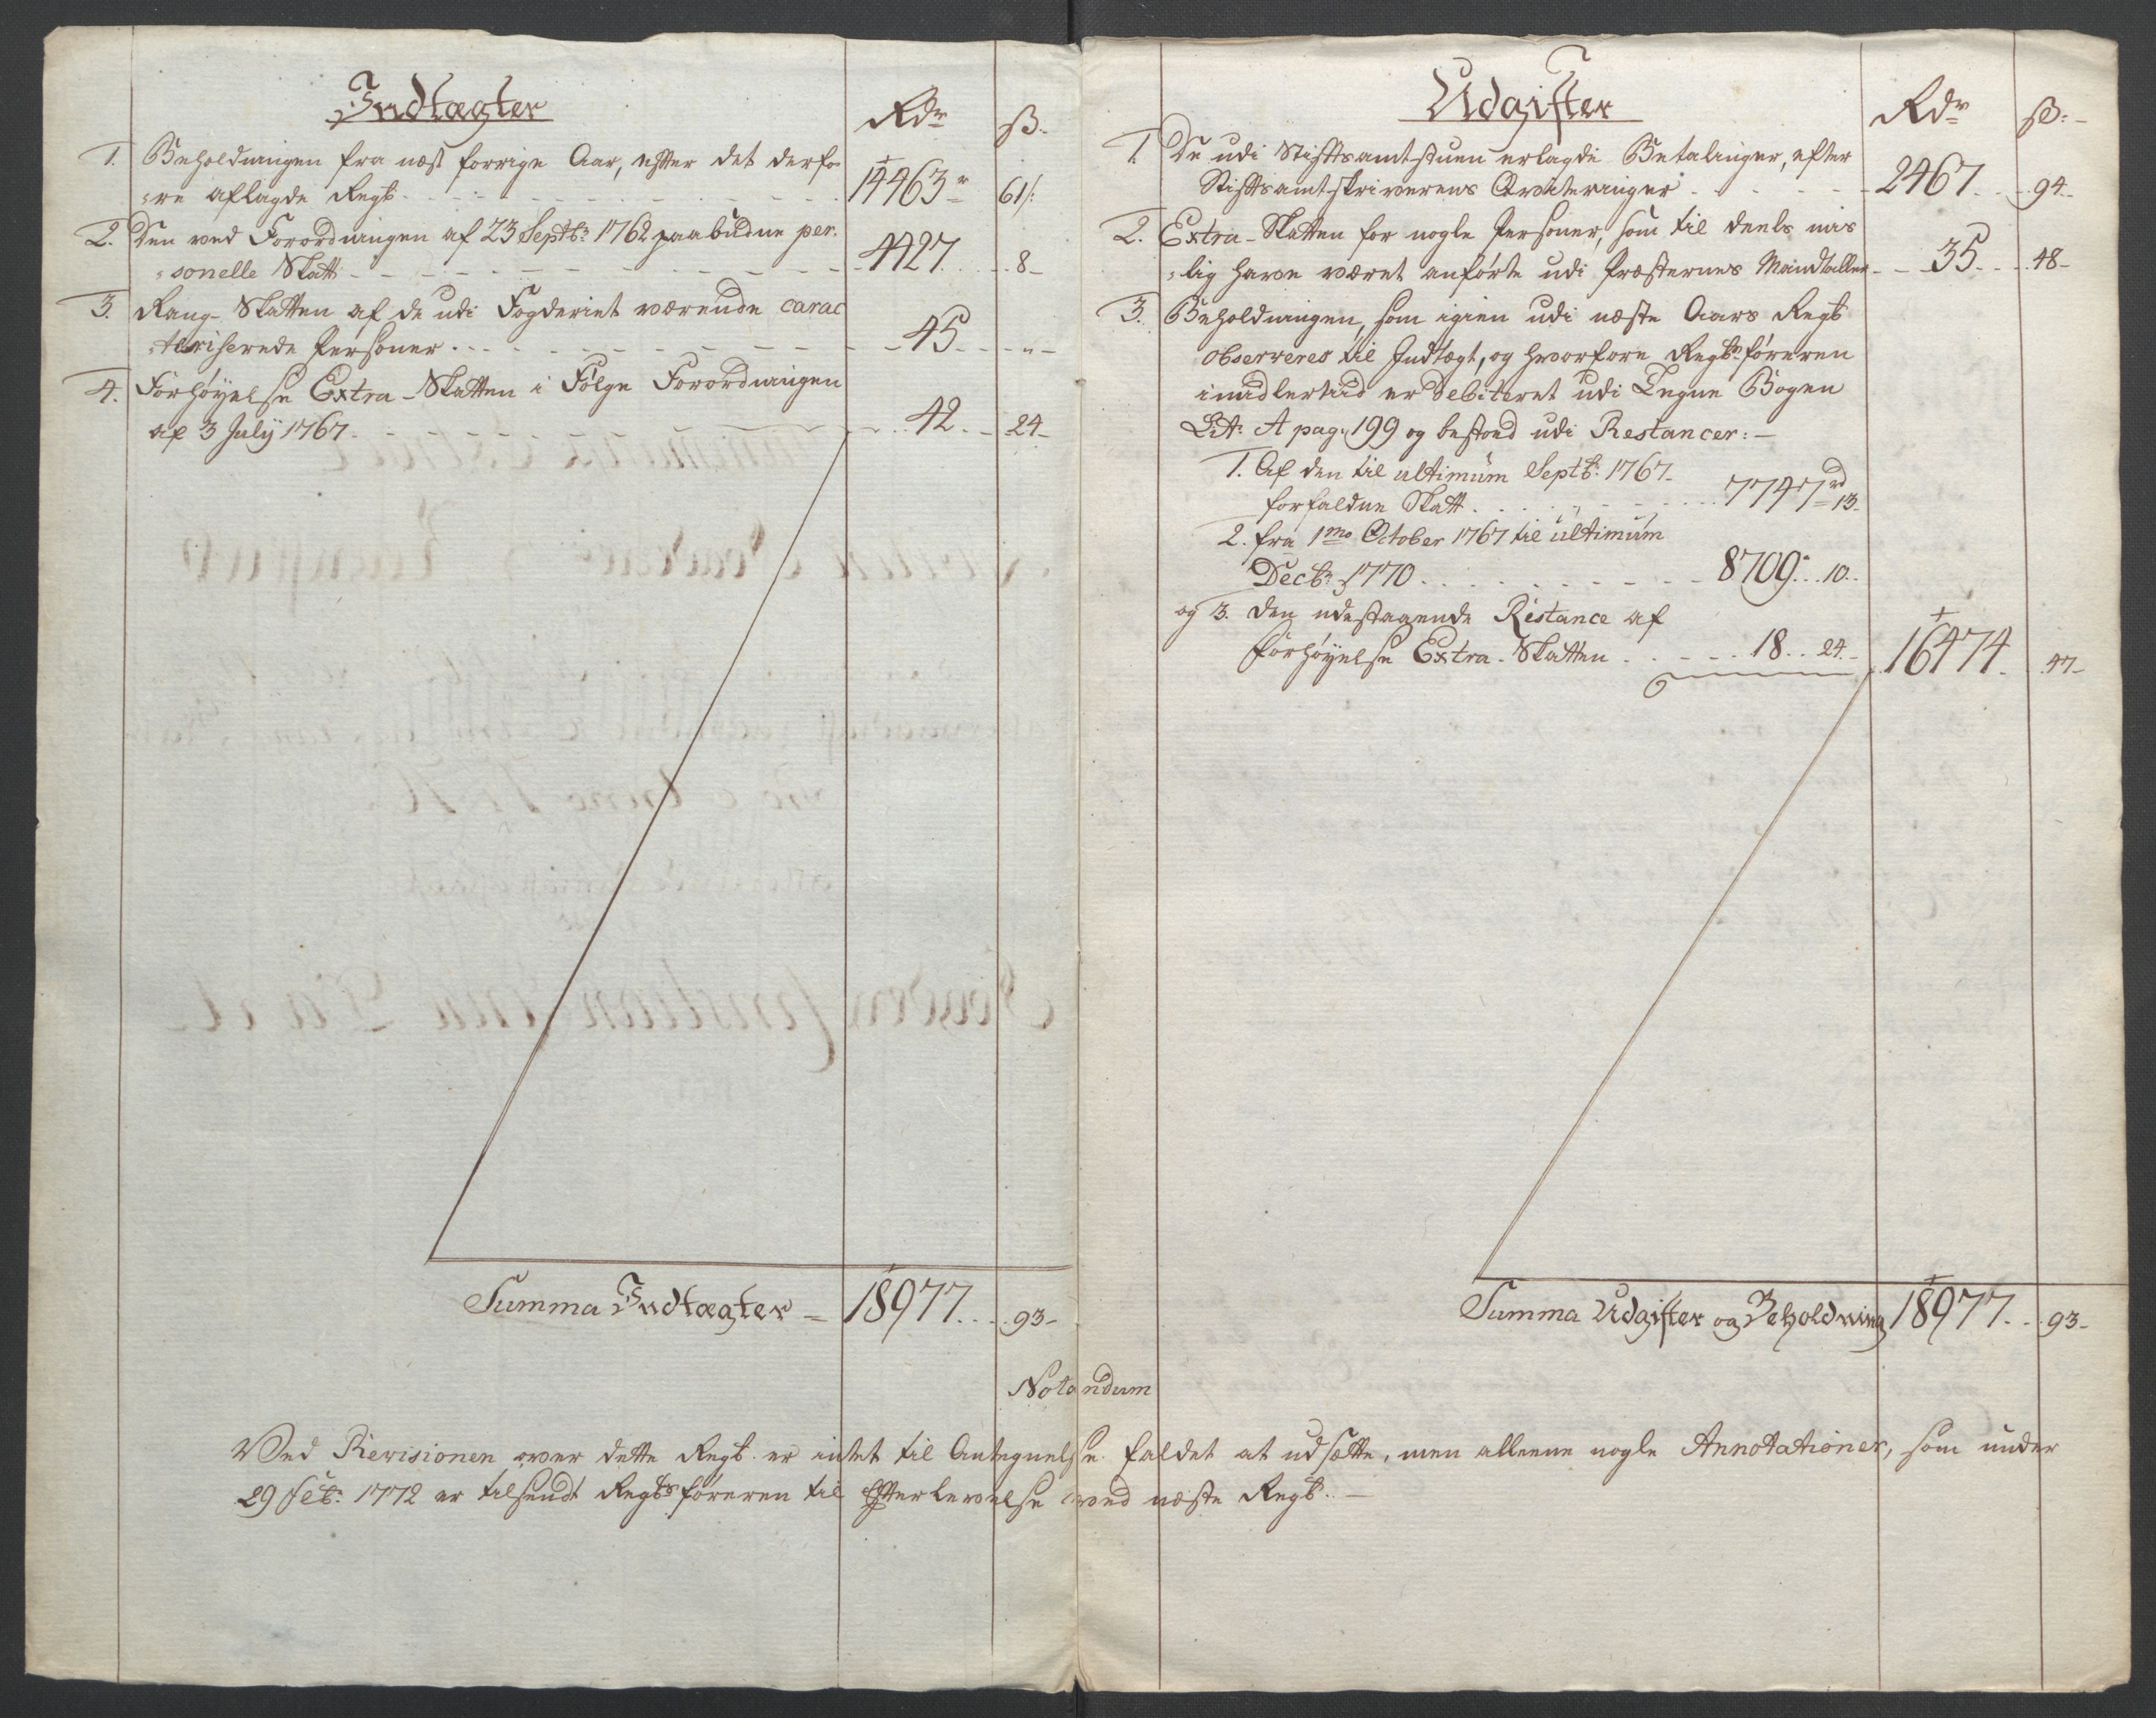 Indtægter
Rdr ß.
1. Beholdningen fra næst forrige Aar, efter det derfo-
=re aflagde Regb. 14463 r 61 ß:
2. Den ved Forordningen af 23 Septbr: 1762 paabudne per-
=sonelle Skatt 4427. 8-
3. Rang-Skatten af de udi Fogderiet værende carac
=teriserede Personer 45. „-
4. Forhøyelse Extra-Skatten i Følge Forordningen
af 3 July 1767. 42. 24-
Summa Indtægter = 18977. 93-
Udgifter
Rdr ß:
1. De udi Stiftsamtstuen erlagde Betalinger, efter
Stiftsamtskriverens Qvitteringer 2467. 94-
2. Extra-Skatten for nogle Personer, som til deels uvis
=lig have været anførte udi Præsternes Mandtaller 35. 48-
3. Beholdningen, som igien udi næste Aars Regb
observeres til Indtægt, og hvorfore Regb:føreren
imidlertiid er debiteret udi Tegne Bogen
Litr: A pag: 199 og bestaaed udi Restancer:-
1. Af den til ultimum Septbr: 1767.
forfaldne Skatt 7747 rd 13-
2. fra 1mo October 1767 til ultimum
Decbr: 1770 8709. 10.
og 3. den udestaaende Restance af
forhøyelse Extra-Skatten 18. 24.- 16474. 47-
Summa Udgifter og Beholdning 18977. 93-
Notandum
Ved Revisionen over dette Regb. er intet til Antegnelse faldet at udsætte, men alleene nogle Annotationer, som under
29 Febr: 1772 er tilsendt Regbsføreren til Efterlevelse ved næste Regb.-